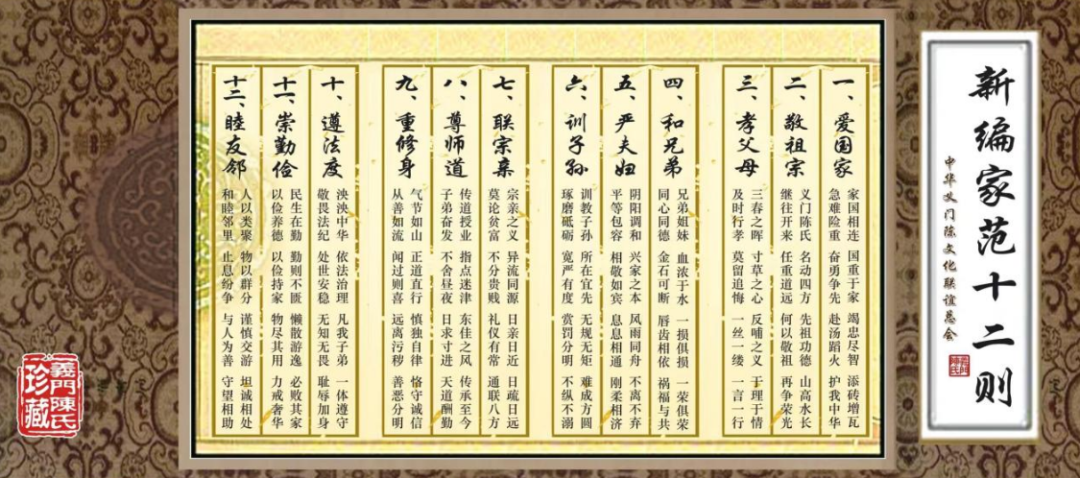 新编家范十二则
中华义门陈文化联谊总会
義門
陳氏
一、爱国家
家国相连 国重于家 竭忠尽智 添砖增瓦
急难险重 奋勇争先 赴汤蹈火 护我中华
二、敬祖宗
义门陈氏 名动四方 先祖功德 山高水长
继往开来 任重道远 何以敬祖 再争荣光
三、孝父母
三春之晖 寸草之心 反哺之义 于理于情
及时行孝 莫留追悔 一丝一缕 一言一行
四、和兄弟
兄弟姐妹 血浓于水 一损俱损 一荣俱荣
同心同德 金石可断 唇齿相依 祸福与共
五、严夫妇
阴阳调和 兴家之本 风雨同舟 不离不弃
平等包容 相敬如宾 息息相通 刚柔相济
六、训子孙
训教子孙 所在宜先 无规无矩 难成方圆
琢磨砥砺 宽严有度 赏罚分明 不纵不溺
七、联宗亲
宗亲之义 异流同源 日亲日近 日疏日远
莫论贫富 不分贵贱 礼仪有常 通联八方
八、尊师道
传道授业 指点迷津 东佳之风 传承至今
子弟奋发 不舍昼夜 日求寸进 天道酬勤
九、重修身
气节如山 正道直行 慎独自律 恪守诚信
从善如流 闻过则喜 远离污秽 善恶分明
十、遵法度
泱泱中华 依法治理 凡我子弟 一体遵守
敬畏法纪 处世安稳 无知无畏 耻辱加身
十一、崇勤俭
民生在勤 勤则不匮 懒散游逸 必败其家
以俭养德 以俭持家 物尽其用 力戒奢华
十二、睦友邻
人以类聚 物以群分 谨慎交游 坦诚相处
和睦邻里 止息纷争 与人为善 守望相助
義門陳氏
珍藏